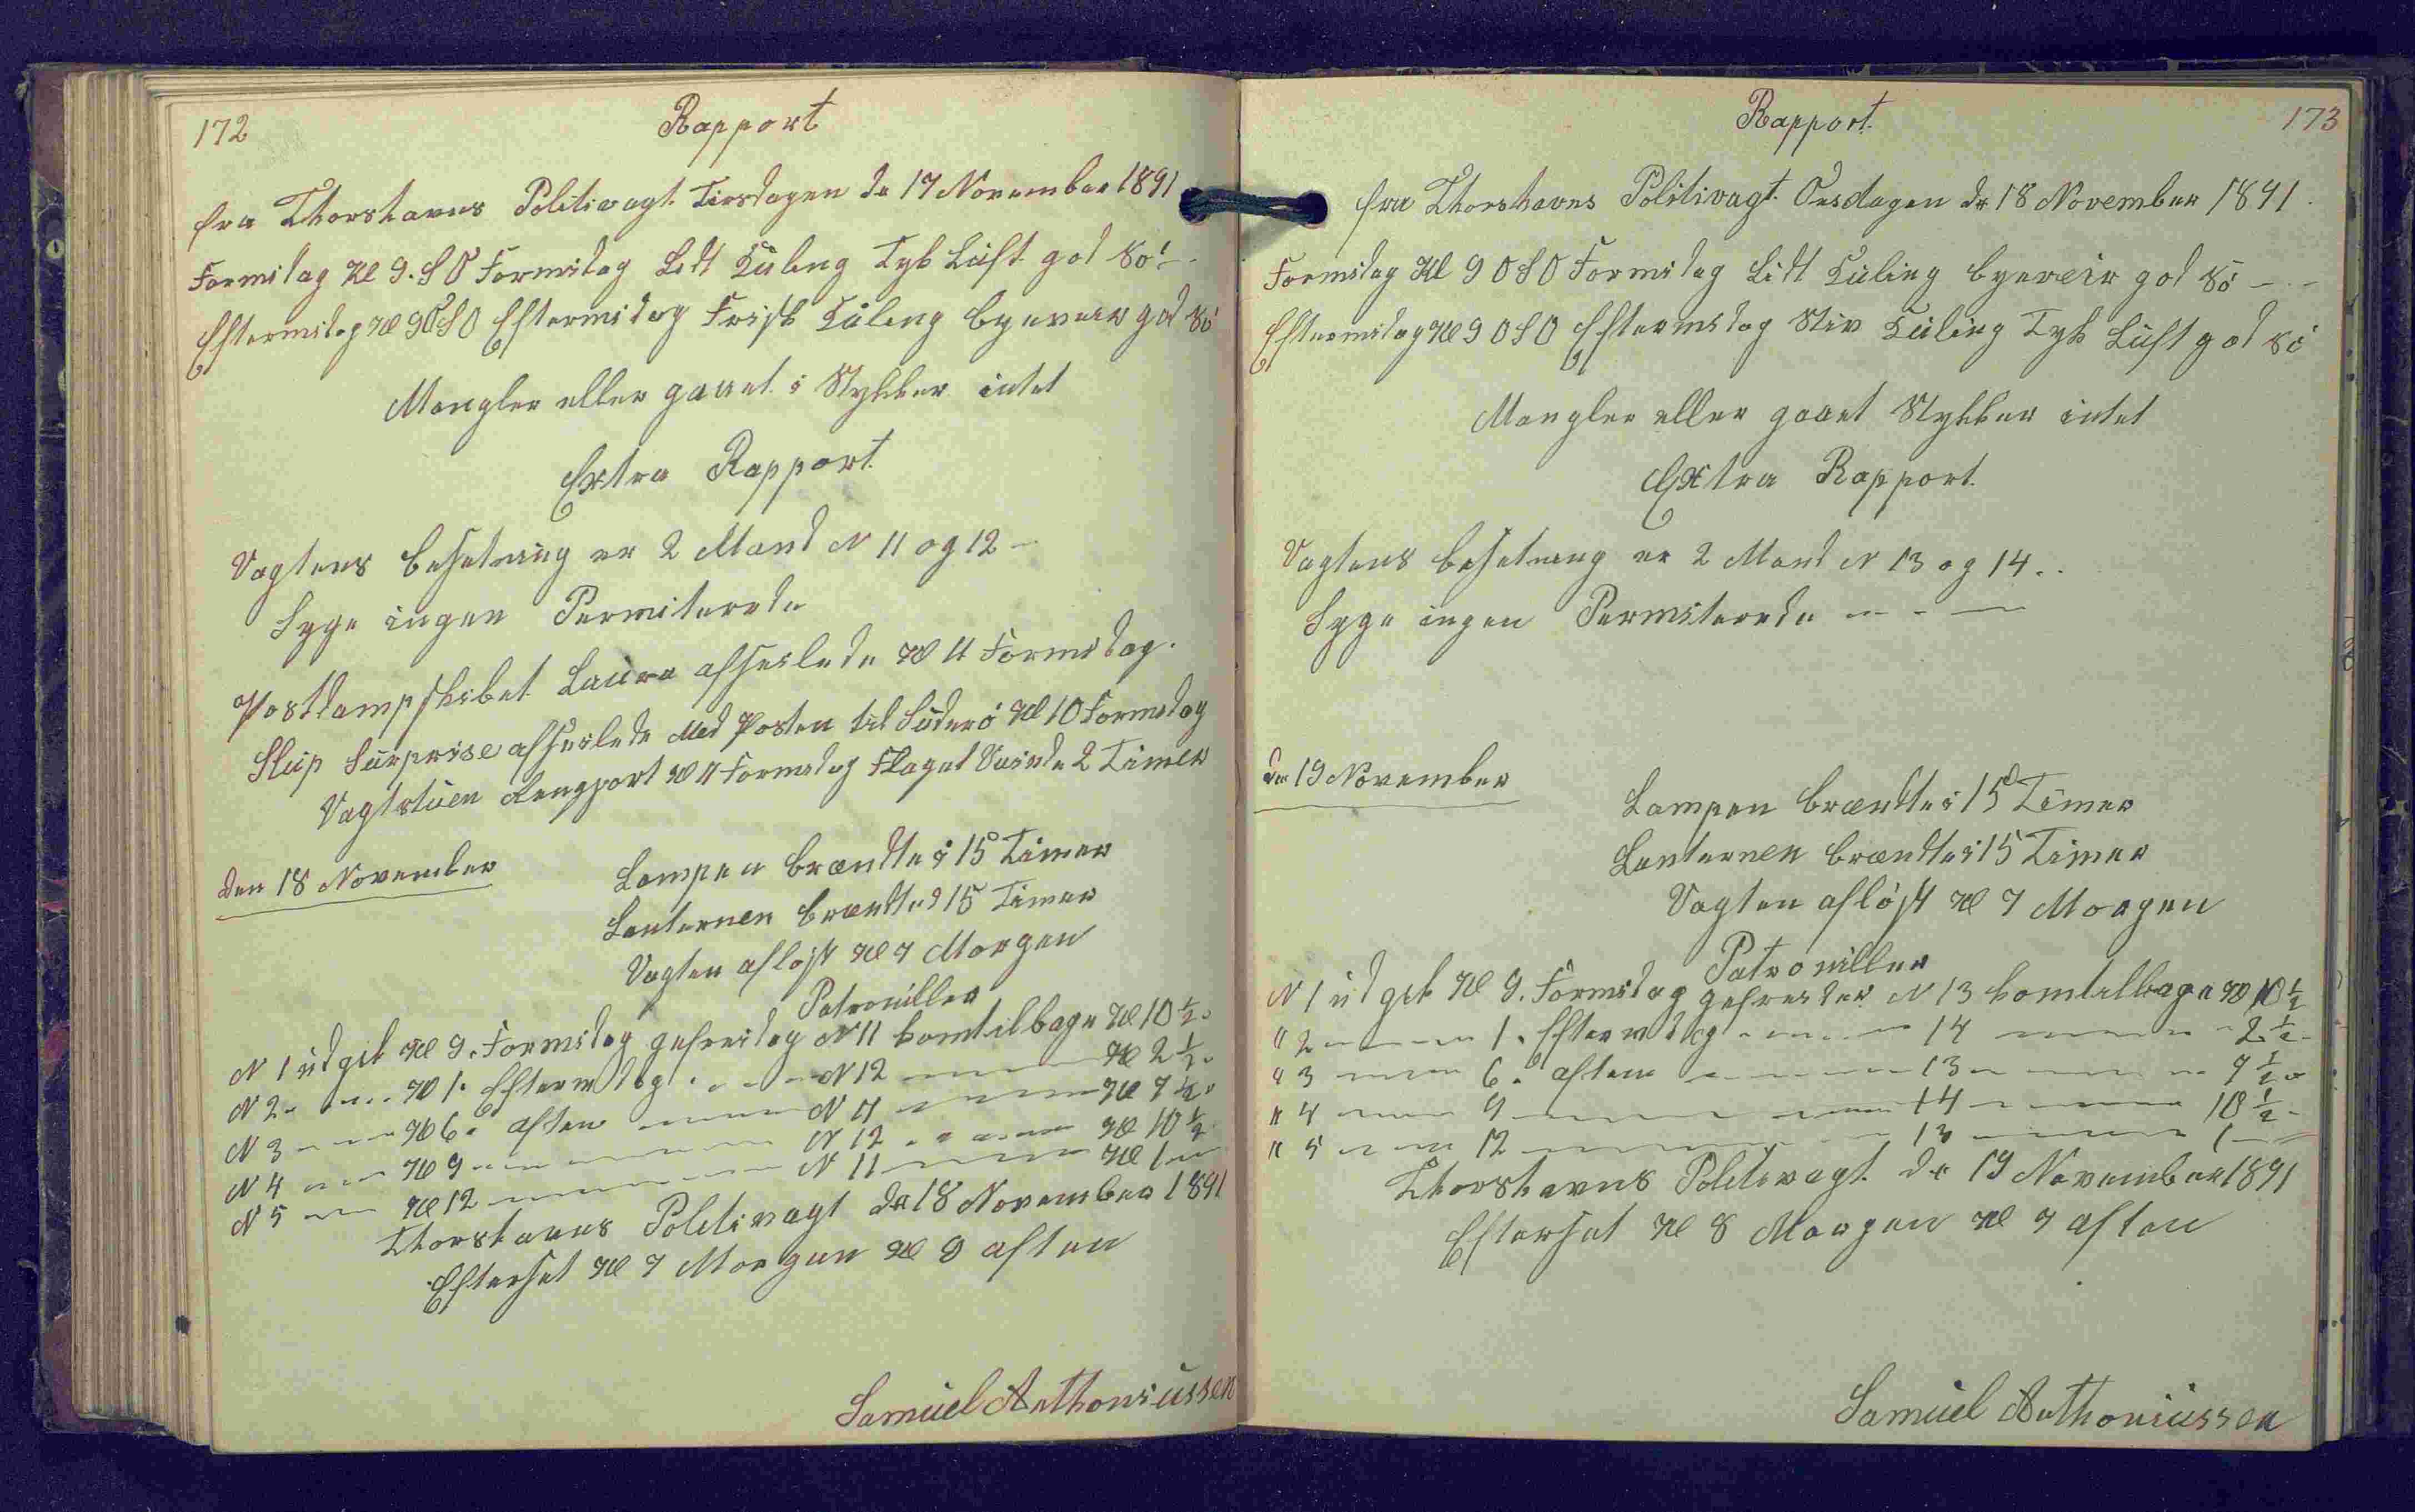 172
Rapport
fra Thorshavns Politivagt Tirsdagen de 17 November 1891
Formidag Kl 9. S O Formidag Lidt Kuling Tyk Luft god Sö -
Eftermidag Kl 9 O S O Eftermidag Frisk Kuling byeveir god Sö
Mangler eller gaaet i Stykker intet
Extra Rapport
Vagtens besetning er 2 Mand N 11 og 12 -
Syge ingen Permiterede
Postdampskibet Laura afseilede Kl 11 Formidag.
Slup Surprise afseilede Med Posten til Suderö Kl 10 Formidag
Vagtstuen Rengjort Kl 11 Formidag Flaget Vaiede 2 Timer
den 18 November
Lampen brændte i 15 Timer
Lanternen brændte i 15 Timer
Vagten afløst Kl 7 Morgen
Patrouiller
N 1 udgik Kl 9. Formidag gefreider N 11 kom tilbage Kl 10 ½.
N 2 - - - Kl 1. Efterm dag - - - N 12 - - - Kl 2 ½.
N 3 - - - Kl 6. aften - - - N 11 - - - Kl 7 ½.
N 4 - - - Kl 9 - - - N 12 - - - Kl 10 ½
N 5 - - - Kl 12 - - - N 11 - - - Kl 1 -
Thorshavns Politivagt de 18 November 1891
Efterset Kl 7 Morgen Kl 9 aften
Samuel Anthoniussen
Rapport
173
fra Thorshavns Politivagt Onsdagen de 18 November 1891.
Formidag Kl 9 O S O Formidag Lidt Kuling byeveir god Sö - -
Eftermidag Kl 9 O S O Eftermidag Stiv Kuling Tyk Luft god Sö
Mangler eller gaaet Stykker intet
Extra Rapport
Vagtens besetning er 2 Mand N 13 og 14..
Syge ingen Permiterede - - -
den 19 November
Lampen brændte i 15 Timer
Lanternen brændte i 15 Timer
Vagten afløst Kl 7 Morgen
Patrouiller
N 1 udgik Kl 9. Formidag gefreider N 13 kom tilbage Kl 10 ½
" 2 - - - 1. Efterm dag - - - 14 - - - 2 ½ -
" 3 - - - 6. aften - - - 13 - - - 7 ½ -
" 4 - - - 9 - - - 14 - - - 10 ½ -
" 5 - - - 12 - - - 13 - - - 1 -
Thorshavns Politivagt de 19 November 1891
Efterset Kl 8 Morgen Kl 7 aften
Samuel Anthoniussen